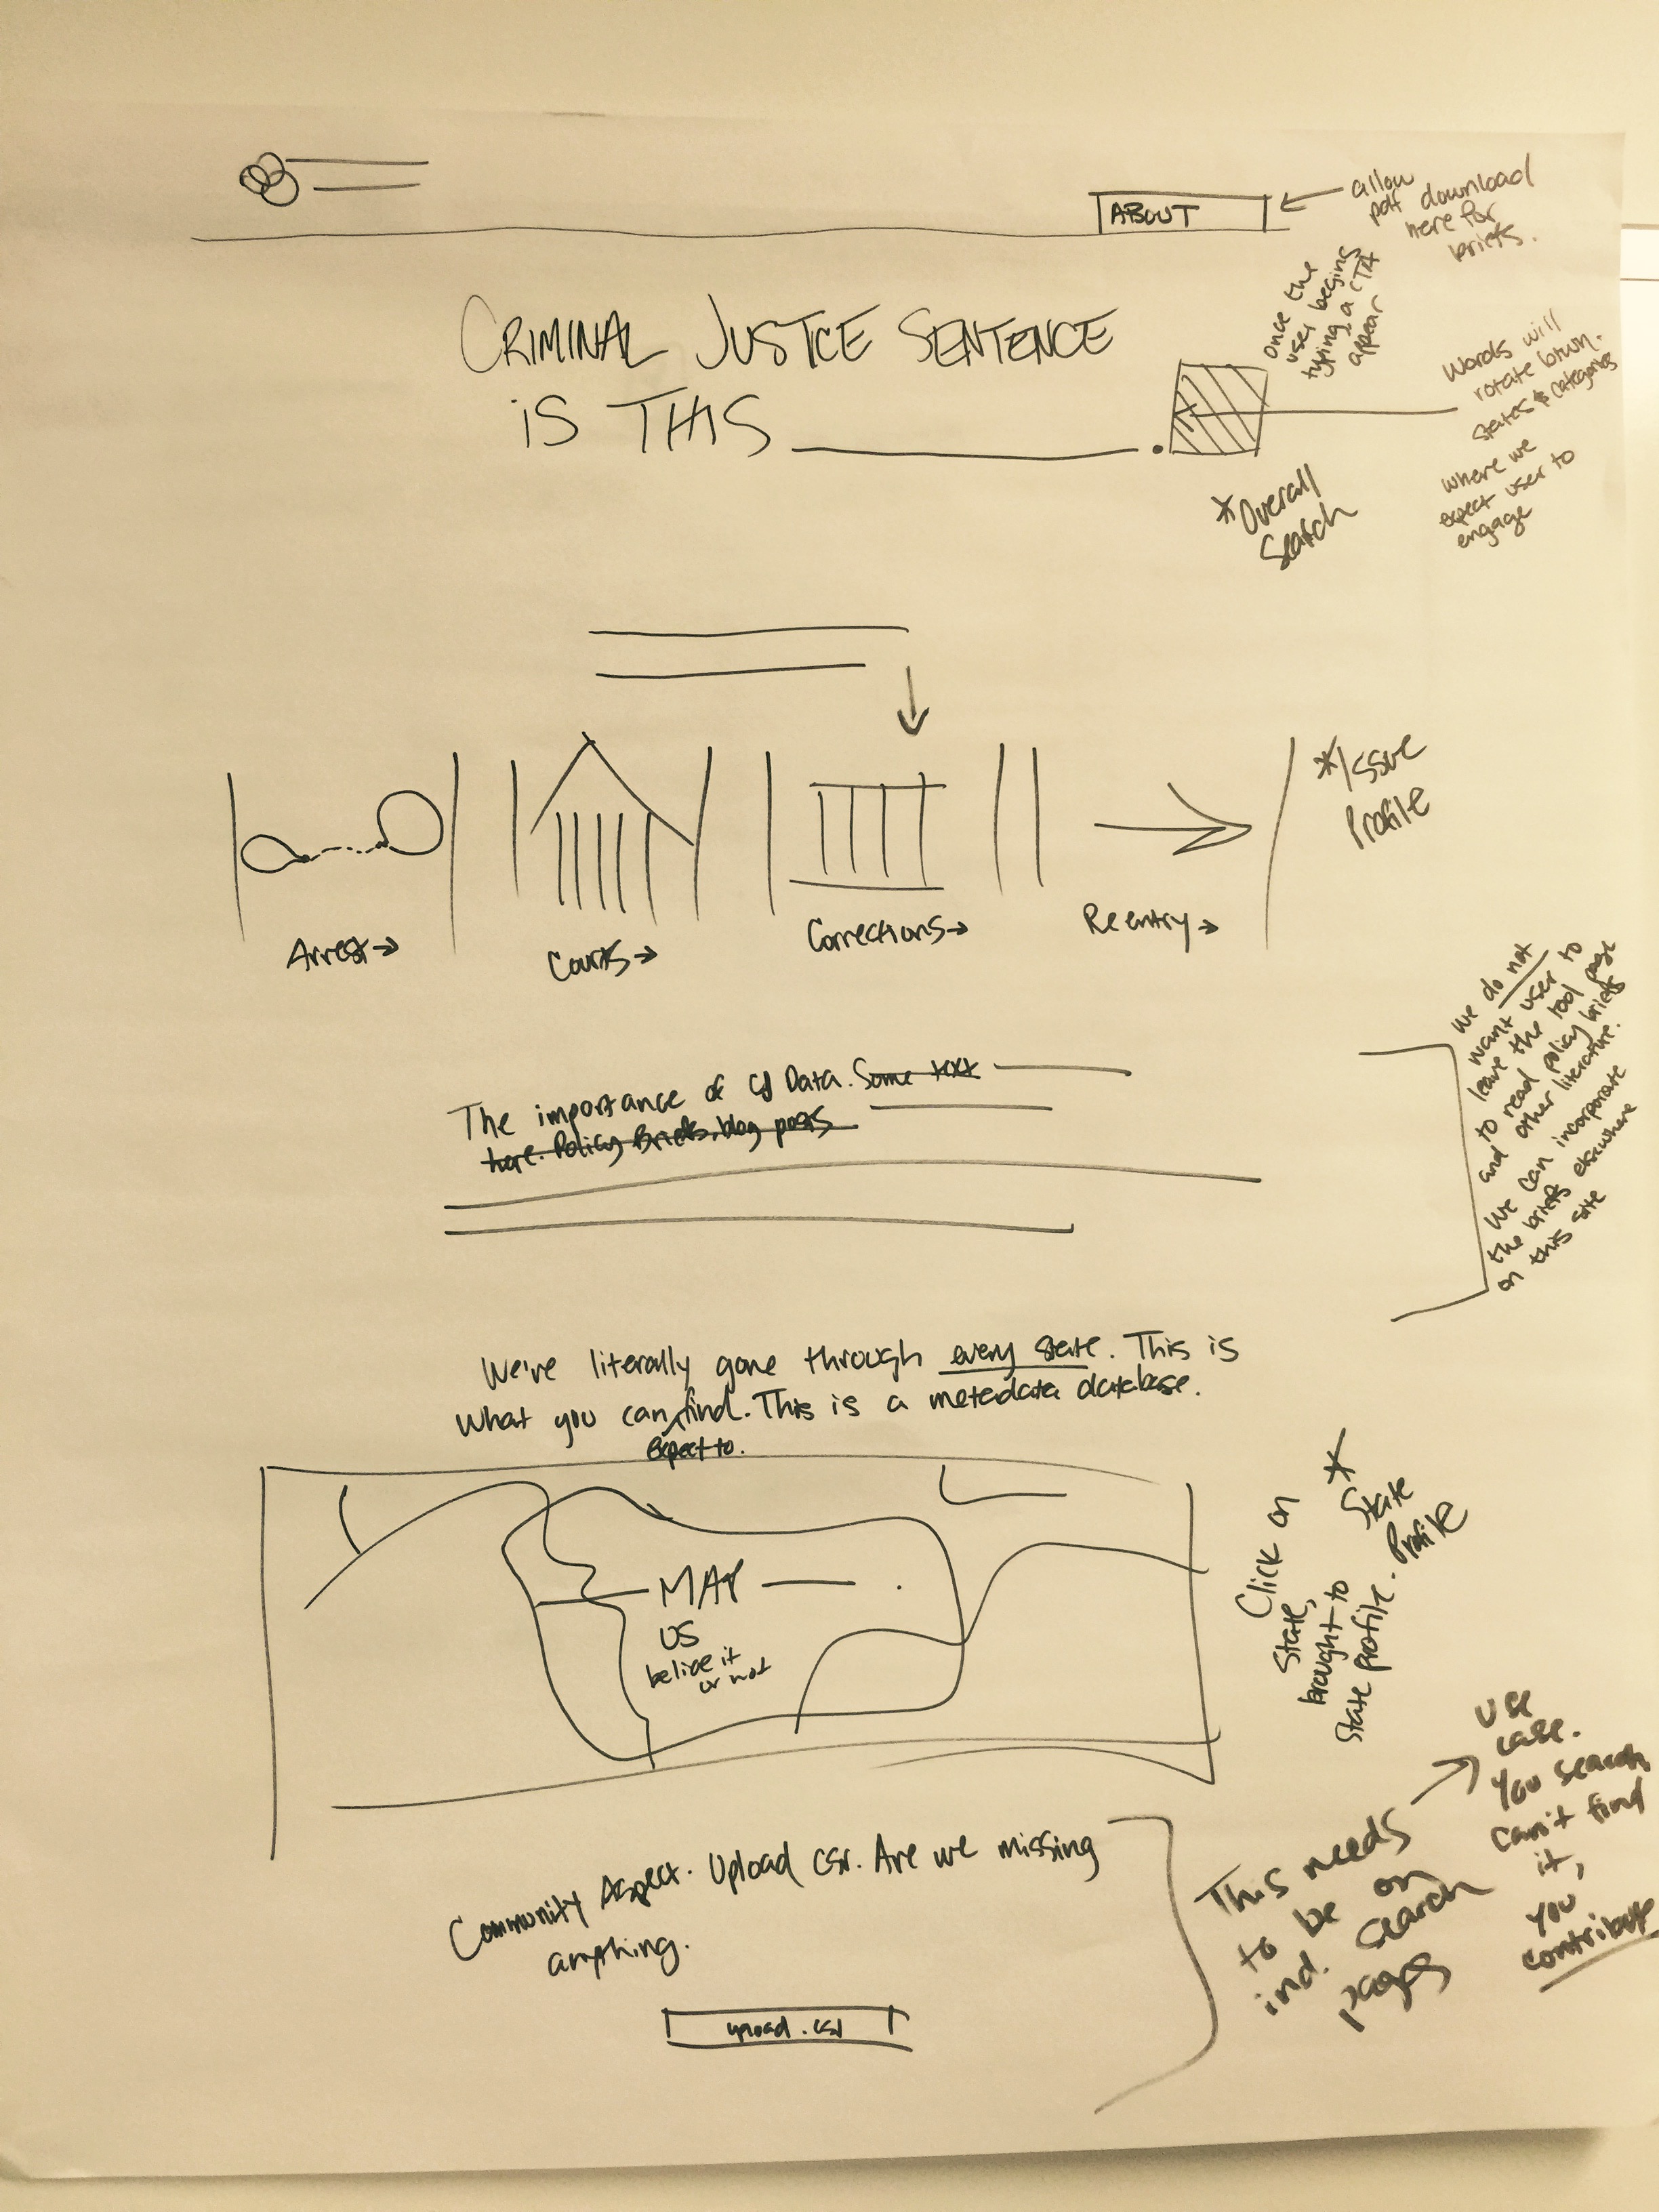 ABOUT
allow
pdf download
here for
briefs.
CRIMINAL JUSTICE SENTENCE
iS THIS ________.
once the
user begins
typing, a CTA
appear
Words will
rotate btwn.
states & categories
where we
expect user to
engage
*Overall
Search
*Issue
Profile
Arrest→
Courts→
Corrections→
Reentry→
The importance of CJ Data. Some text
here. Policy Briefs, blog posts
We do not
want user to
leave the tool page
to read policy briefs
and other literature.
We can incorporate
the briefs elsewhere
on this site
We're literally gone through every state. This is
what you can find. This is a metadata database.
expect to.
MAP
US
belive it
or not
Click on
State,
brought to
State profile.
*
State
Profile
Community Aspect. Upload csv. Are we missing
anything.
upload .csv
This needs
to be on
ind. search
pages
use
case.
You search
can't find
it,
you
contribute